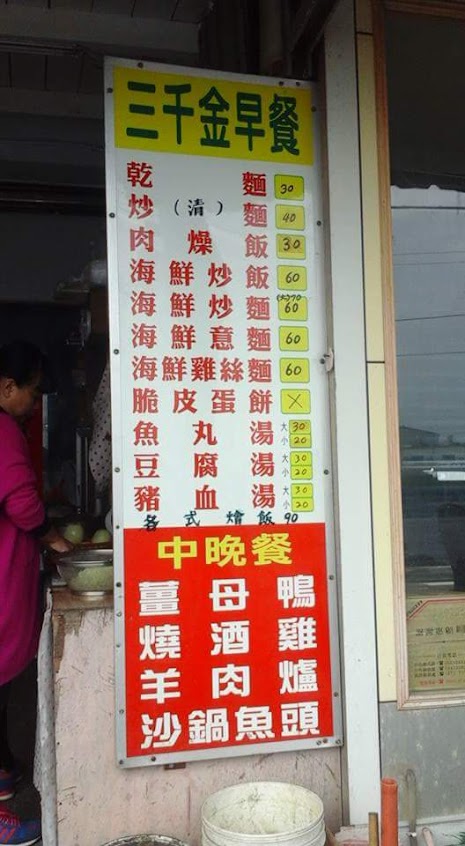 三千金早餐
乾麵 30
炒(清)麵 40
肉燥飯 30
海鮮炒飯 60
海鮮炒麵 (大)70 60
海鮮意麵 60
海鮮雞絲麵 60
脆皮蛋餅 X
魚丸湯 大30 小20
豆腐湯 大30 小20
豬血湯 大30 小20
各式燴飯 90
中晚餐
薑母鴨
燒酒雞
羊肉爐
沙鍋魚頭